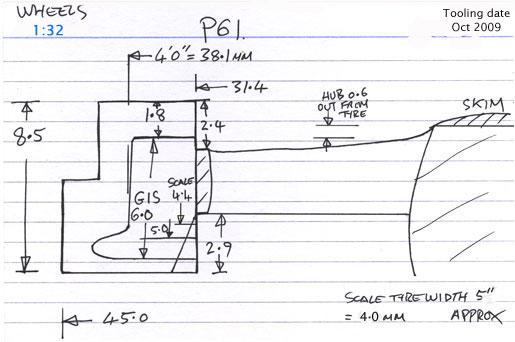 WHEELS
1:32
P61.
Tooling date
Oct 2009
4'0" = 38.1 MM
31.4
HUB 0.6
OUT FROM
TYRE
SKIM
1.8
2.4
8.5
SCALE
4.4
G1S
6.0
5.0
2.9
SCALE TYRE WIDTH 5"
= 4.0 MM APPROX
45.0